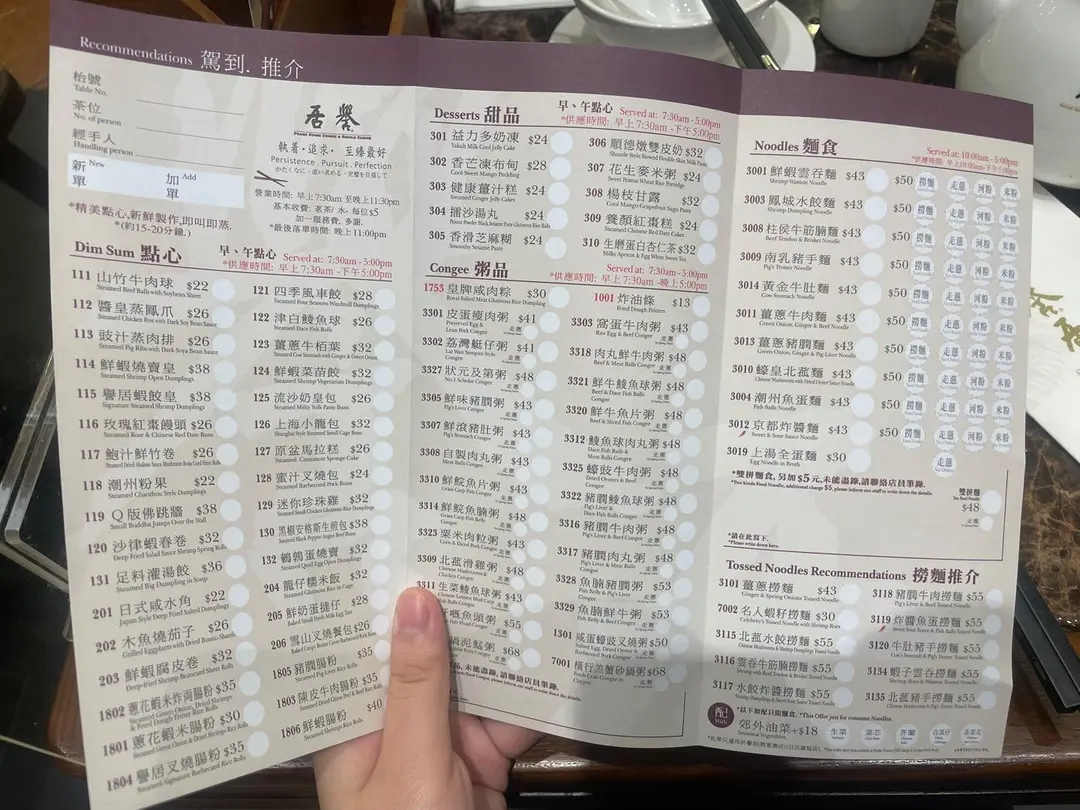 Recommendations 駕到. 推介
枱號
Table No.
茶位
No. of person
經手人
Handling person
新單 New
加單 Add
*精美點心,新鮮製作,即叫即蒸.
*(約15~20分鐘.)
居譽
執着·追求· 至臻最好
Persistence . Pursuit . Perfection
營業時間: 早上7:30am 至晚上11:30pm
基本收費: 茗茶/水- 每位$5
加一服務費, 多謝.
*最後落單時間: 晚上11:00pm
Dim Sum 點心
早、午點心 Served at: 7:30am - 5:00pm
*供應時間: 早上7:30am -下午5:00pm
111 山竹牛肉球 $22
Steamed Beef Balls with Soybean Sheet
112 醬皇蒸鳳爪 $26
Steamed Chicken Feet with Dark Soy Bean Sauce
113 豉汁蒸肉排 $26
Steamed Pig Ribs with Dark Soya Bean Sauce
114 鮮蝦燒賣皇 $38
Steamed Shrimp Open Dumplings
115 譽居蝦餃皇 $38
Signature Steamed Shrimp Dumplings
116 玫瑰紅棗饅頭 $26
Steamed Rose & Chinese Red Date Buns
117 鮑汁鮮竹卷 $26
118 潮州粉果 $22
Steamed Chaozhou Style Dumplings
119 Q版佛跳牆 $38
Small Buddha Jumps Over the Wall
120 沙律蝦春卷 $32
Deep Fried Salad Sauce Shrimp Spring Rolls
131 足料灌湯餃 $36
Steamed Big Dumpling in Soup
201 日式咸水角 $22
Japan Style Deep Fried Salted Dumplings
202 木魚燒茄子 $26
Grilled Eggplants with Dried Bonito Shards
203 鮮蝦腐皮卷 $32
Deep-fried Shrimp Beansheet Rolls
1802 蔥花蝦米炸両腸粉 $35
Steamed Green Onion, Dried Shrimp
& Fried Dough Fritter Rice Rolls
1801 蔥花蝦米腸粉 $30
Steamed Green Onion & Dried Shrimp Rice Rolls
1804 譽居叉燒腸粉 $35
Steamed Signature Barbecued Rice Rolls
121 四季風車餃 $28
Steamed Four Seasons Windmill Dumplings
122 津白鯪魚球 $26
Steamed Dace Fish Balls
123 薑蔥牛栢葉 $32
Steamed Cow Stomach with Ginger & Green Onion
124 鮮蝦菜苗餃 $32
Steamed Shrimp Vegetarian Dumplings
125 流沙奶皇包 $26
Steamed Milky Yolk Paste Buns
126 上海小籠包 $32
Shanghai Style Steamed Small Cage Buns
127 原盆馬拉糕 $26
Steamed Cantonese Sponge Cake
128 蜜汁叉燒包 $24
Steamed Barbecued Pork Buns
129 迷你珍珠雞 $32
Steamed Small Chicken Glutinous Rice Dumplings
130 黑椒安格斯生煎包 $38
Steamed Black Pepper Angus Beef Buns
132 鵪鶉蛋燒賣 $32
Steamed Quail Egg Open Dumplings
204 龍仔糯米飯 $32
Steamed Glutinous Rice in Cage
205 鮮奶蛋撻仔 $28
Baked Small Fresh Milk Egg Tart
206 雪山叉燒餐包 $26
1805 豬膶腸粉 $35
Steamed Pig Liver Rice Rolls
1803 陳皮牛肉腸粉 $35
1806 鮮蝦腸粉 $40
Steamed Shrimps Rice Rolls
Desserts 甜品
早、午點心 Served at: 7:30am - 5:00pm
*供應時間: 早上7:30am -下午5:00pm
301 益力多奶凍 $24
Yakult Milk Cool Jelly Cake
302 香芒凍布甸 $28
Cool Sweet Mango Pudding
303 健康薑汁糕 $24
Steamed Ginger Jelly Cakes
304 擂沙湯丸 $24
305 香滑芝麻糊 $24
Smoothy Sesame Paste
306 順德燉雙皮奶 $32
Shunde Style Stewed Double Skin Milk Paste
307 花生麥米粥 $24
Sweet Peanut Wheat Rice Porridge
308 楊枝甘露 $32
Cool Mango Grapefruit Sago Paste
309 養顏紅棗糕 $24
Steamed Chinese Red Date Cakes
310 生磨蛋白杏仁茶 $32
Milky Apricot & Egg White Sweet Tea
Congee 粥品
Served at: 7:30am - 5:00pm
*供應時間: 早上7:30am -晚上5:00pm
1753 皇牌咸肉粽 $30
Royal Salted Meat Glutinous Rice Dumpling
3301 皮蛋瘦肉粥 $41
Preserved Egg &
Lean Pork Congee
3302 荔灣艇仔粥 $41
Lai Wan Sampan Style
Congee
3327 狀元及第粥 $48
No.1 Scholar Congee
3305 鮮味豬膶粥 $43
Pig's Liver Congee
3307 鮮滾豬肚粥 $43
Pig's Stomach Congee
3308 自製肉丸粥 $43
Meat Balls Congee
3310 鮮鯇魚片粥 $43
Grass Carp Fish Congee
3314 鮮鯇魚腩粥 $48
Grass Carp Fish Belly
Congee
3323 粟米肉粒粥 $43
Corn & Diced Pork Congee
3309 北菰滑雞粥 $48
Chinese Mushrooms &
Chicken Congee
3311 生菜鯪魚球粥 $43
魚頭粥 $55
$68
1001 炸油條 $13
Fried Dough Fritters
3303 窩蛋牛肉粥 $43
Raw Egg & Beef Congee
3318 肉丸鮮牛肉粥 $48
Beef & Meat Balls Congee
3321 鮮牛鯪魚球粥 $48
Beef & Dace Fish Balls
Congee
3320 鮮牛魚片粥 $48
Beef & Sliced Fish Congee
3312 鯪魚球肉丸粥 $48
Dace Fish Balls &
Meat Balls Congee
3325 蠔豉牛肉粥 $48
Dried Oysters & Beef
Congee
3322 豬膶鯪魚球粥 $48
Pig's Liver &
Dace Fish Balls Congee
3316 豬膶牛肉粥 $48
Pig's Liver & Beef Congee
3317 豬膶肉丸粥 $48
Pig's Liver & Meat Balls Congee
3328 魚腩豬膶粥 $53
Fish Belly & Pig's Liver Congee
3329 魚腩鮮牛粥 $53
Fish Belly & Beef Congee
1301 咸蛋蠔豉叉燒粥 $50
7001 橫行羔蟹砂鍋粥 $68
Fresh Crab Congee in
Noodles 麵食
Served at: 10:00am - 5:00pm
*供應時間: 早上10:00am-下午5:00pm
3001 鮮蝦雲吞麵 $43 $50 撈麵 走蔥 河粉 米粉
Shrimp Wanton Noodle
3003 鳳城水餃麵 $43 $50 撈麵 走蔥 河粉 米粉
Shrimp Dumpling Noodle
3008 柱侯牛筋腩麵 $43 $50 撈麵 走蔥 河粉 米粉
Beef Tendon & Brisket Noodle
3009 南乳豬手麵 $43 $50 撈麵 走蔥 河粉 米粉
Pig's Trotter Noodle
3014 黃金牛肚麵 $43 $50 撈麵 走蔥 河粉 米粉
Cow Stomach Noodle
3011 薑蔥牛肉麵 $43 $50 撈麵 走蔥 河粉 米粉
Green Onion, Ginger & Beef Noodle
3013 薑蔥豬膶麵 $43 $50 撈麵 走蔥 河粉 米粉
Green Onion, Ginger & Pig Liver Noodle
3010 蠔皇北菰麵 $43 $50 撈麵 走蔥 河粉 米粉
Chinese Mushrooms with Dried Oyster Sauce Noodle
3004 潮州魚蛋麵 $43 $50 撈麵 走蔥 河粉 米粉
Fish Balls Noodle
3012 京都炸醬麵 $43 $50 撈麵 走蔥 河粉 米粉
Sweet & Sour Sauce Noodle
3019 上湯全蛋麵 $30 走蔥 河粉 米粉
Egg Noodle in Broth
*雙拼麵食, 另加$5元,未能盡錄,請聯絡店員筆錄.
*Two kinds Food Noodle, additional charge $5, please inform our staff to write down the details.
雙拼麵
$48
走蔥
*請在此寫下.
*Please write down here.
Tossed Noodles Recommendations 撈麵推介
3101 薑蔥撈麵 $30
Ginger & Spring Onions Tossed Noodle
7002 名人蝦籽撈麵 $43
Celebrity's Tossed Noodle with Shrimp Roes
3115 北菰水餃撈麵 $55
3116 雲吞牛筋腩撈麵 $55
3117 水餃炸醬撈麵 $55
3118 豬膶牛肉撈麵 $55
Pig's Liver & Beef Tossed Noodle
3119 炸醬魚蛋撈麵 $55
3120 牛肚豬手撈麵 $55
3134 蝦子雲吞撈麵 $55
3135 北菰豬手撈麵 $55
配 With
*以下加配只限麵食. *This Offer just for consume Noodles.
郊外油菜+$18
Seasonal Vegetables
生菜 菜芯 芥蘭